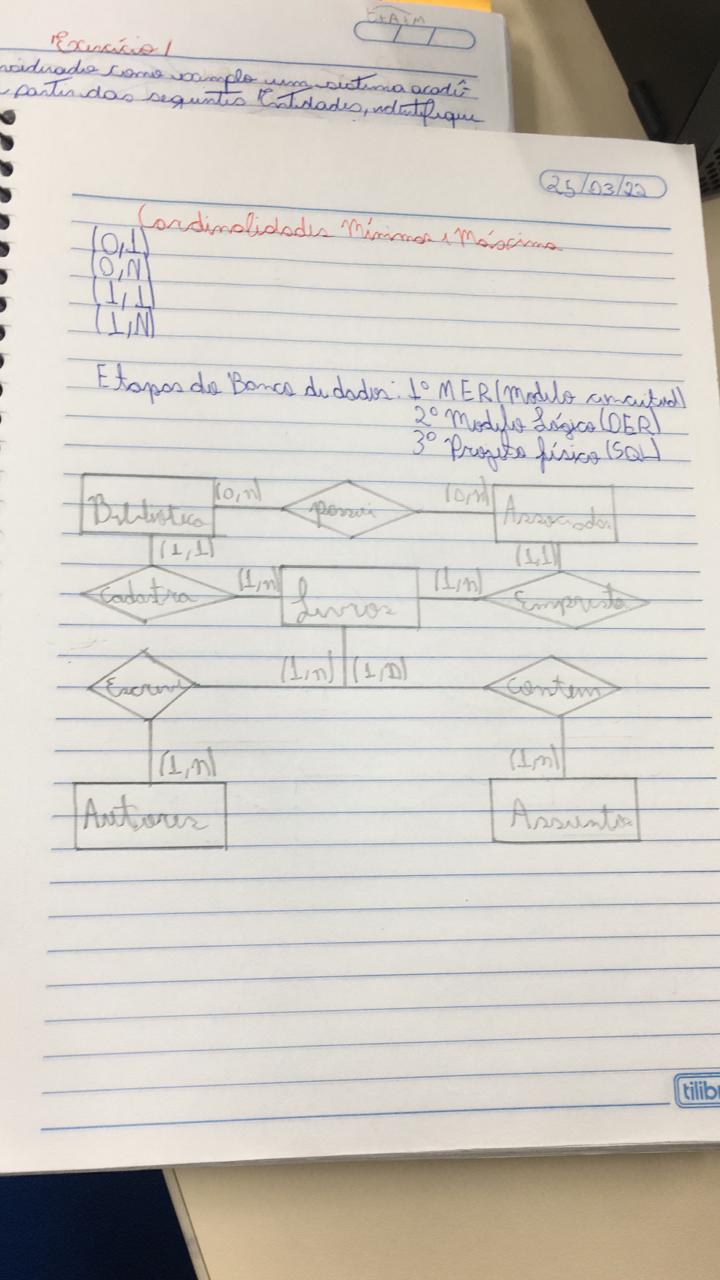 Exercício 1
como exemplo um sistema acadê-
partir das seguintes Entidades, identifique
25/03/22
Cardinalidades Mínimas e Máxima
(0,1)
(0,N)
(1,1)
(1,N)
Etapas do Banco de dados: 1º MER (Modelo conceitual)
2º Modelo Lógico (DER)
3º Projeto físico (SQL)
Biblioteca (0,n) possui (0,n) Associados
(1,1) (1,1)
Cadastra (1,n) Livros (1,n) Empresta
Escreve (1,n) (1,n) Contem
(1,n) (1,n)
Autores Assuntos